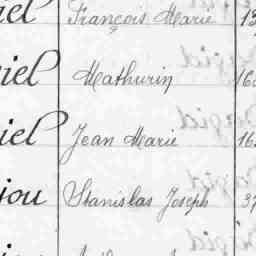 iel François Marie 13
iel Mathurin 16
iel Jean Marie 16
jou Stanislas Joseph 37